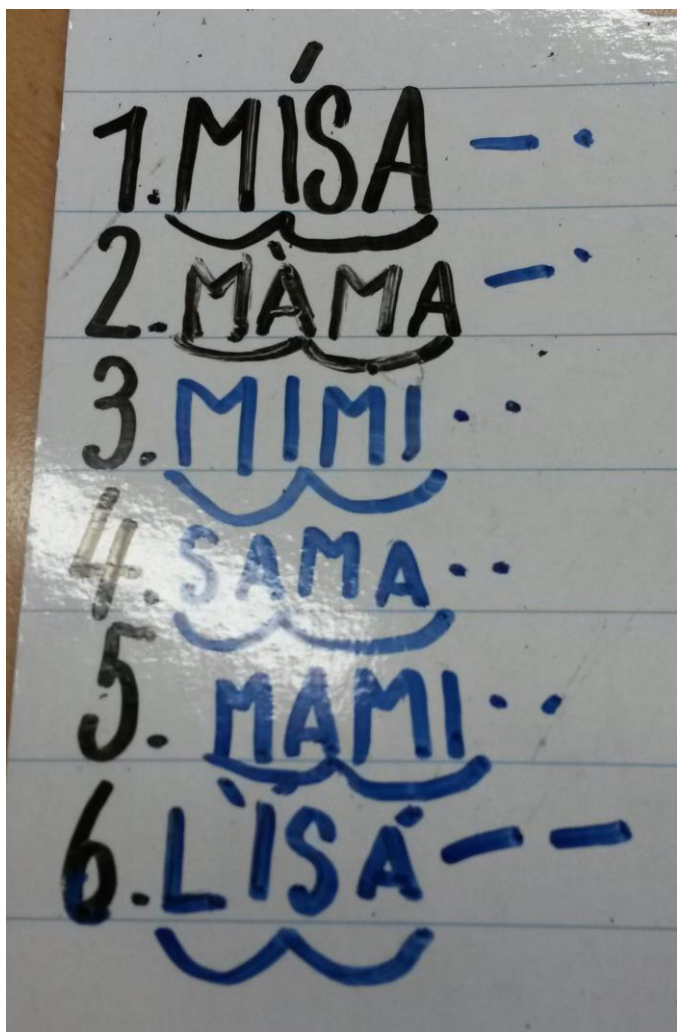 1. MÍSA — ·
2. MÀMA — ·
3. MIMI · ·
4. SAMA · ·
5. MAMI · ·
6. LÌSÁ — —